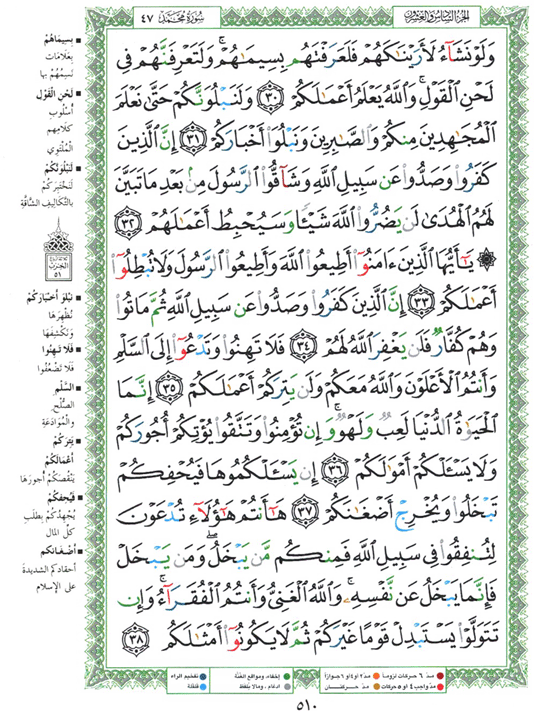 الجزء السادس والعشرون
سورة محمد ٤٧
وَلَوْ نَشَآءُ لَأَرَيْنَٰكَهُمْ فَلَعَرَفْتَهُم بِسِيمَٰهُمْ ۚ وَلَتَعْرِفَنَّهُمْ فِى
لَحْنِ ٱلْقَوْلِ ۚ وَٱللَّهُ يَعْلَمُ أَعْمَٰلَكُمْ ٣٠ وَلَنَبْلُوَنَّكُمْ حَتَّىٰ نَعْلَمَ
ٱلْمُجَٰهِدِينَ مِنكُمْ وَٱلصَّٰبِرِينَ وَنَبْلُوَا۟ أَخْبَارَكُمْ ٣١ إِنَّ ٱلَّذِينَ
كَفَرُوا۟ وَصَدُّوا۟ عَن سَبِيلِ ٱللَّهِ وَشَآقُّوا۟ ٱلرَّسُولَ مِنۢ بَعْدِ مَا تَبَيَّنَ
لَهُمُ ٱلْهُدَىٰ لَن يَضُرُّوا۟ ٱللَّهَ شَيْـًٔا وَسَيُحْبِطُ أَعْمَٰلَهُمْ ٣٢
۞ يَٰٓأَيُّهَا ٱلَّذِينَ ءَامَنُوٓا۟ أَطِيعُوا۟ ٱللَّهَ وَأَطِيعُوا۟ ٱلرَّسُولَ وَلَا تُبْطِلُوٓا۟
أَعْمَٰلَكُمْ ٣٣ إِنَّ ٱلَّذِينَ كَفَرُوا۟ وَصَدُّوا۟ عَن سَبِيلِ ٱللَّهِ ثُمَّ مَاتُوا۟
وَهُمْ كُفَّارٌ فَلَن يَغْفِرَ ٱللَّهُ لَهُمْ ٣٤ فَلَا تَهِنُوا۟ وَتَدْعُوٓا۟ إِلَى ٱلسَّلْمِ
وَأَنتُمُ ٱلْأَعْلَوْنَ وَٱللَّهُ مَعَكُمْ وَلَن يَتِرَكُمْ أَعْمَٰلَكُمْ ٣٥ إِنَّمَا
ٱلْحَيَوٰةُ ٱلدُّنْيَا لَعِبٌ وَلَهْوٌ ۚ وَإِن تُؤْمِنُوا۟ وَتَتَّقُوا۟ يُؤْتِكُمْ أُجُورَكُمْ
وَلَا يَسْـَٔلْكُمْ أَمْوَٰلَكُمْ ٣٦ إِن يَسْـَٔلْكُمُوهَا فَيُحْفِكُمْ
تَبْخَلُوا۟ وَيُخْرِجْ أَضْغَٰنَكُمْ ٣٧ هَٰٓأَنتُمْ هَٰٓؤُلَآءِ تُدْعَوْنَ
لِتُنفِقُوا۟ فِى سَبِيلِ ٱللَّهِ فَمِنكُم مَّن يَبْخَلُ ۖ وَمَن يَبْخَلْ
فَإِنَّمَا يَبْخَلُ عَن نَّفْسِهِۦ ۚ وَٱللَّهُ ٱلْغَنِىُّ وَأَنتُمُ ٱلْفُقَرَآءُ ۚ وَإِن
تَتَوَلَّوْا۟ يَسْتَبْدِلْ قَوْمًا غَيْرَكُمْ ثُمَّ لَا يَكُونُوٓا۟ أَمْثَٰلَكُم ٣٨
بِسِيمَاهُمْ
بِعَلَامَاتٍ
نَسِمُهُمْ بِهَا
لَحْنِ الْقَوْلِ
أُسْلُوبِ
كَلَامِهِم
الْمُلْتَوِي
لَنَبْلُوَنَّكُمْ
لَنَخْتَبِرَنَّكُمْ
بِالتَّكَالِيفِ الشَّاقَّةِ
الحزب
٥١
نَبْلُوَ أَخْبَارَكُمْ
نُظْهِرَهَا
وَنَكْشِفَهَا
فَلَا تَهِنُوا
فَلَا تَضْعُفُوا
السَّلْمِ
الصُّلْحِ
وَالْمُوَادَعَةِ
يَتِرَكُمْ
أَعْمَالَكُمْ
يَنْقُصَكُمْ أُجُورَهَا
فَيُحْفِكُمْ
يُجْهِدْكُمْ بِطَلَبِ
كُلِّ الْمَالِ
أَضْغَانَكُمْ
أحقادكم الشديدة
على الإسلام
مدّ ٦ حركات لزوماً
مدّ ٢ أو ٤ أو ٦ جوازاً
إخفاء، ومواقع الغنّة
تفخيم الراء
مدّ واجب ٤ أو ٥ حركات
مدّ حركتان
ادغام، وما لا يلفظ
قلقلة
٥١٠